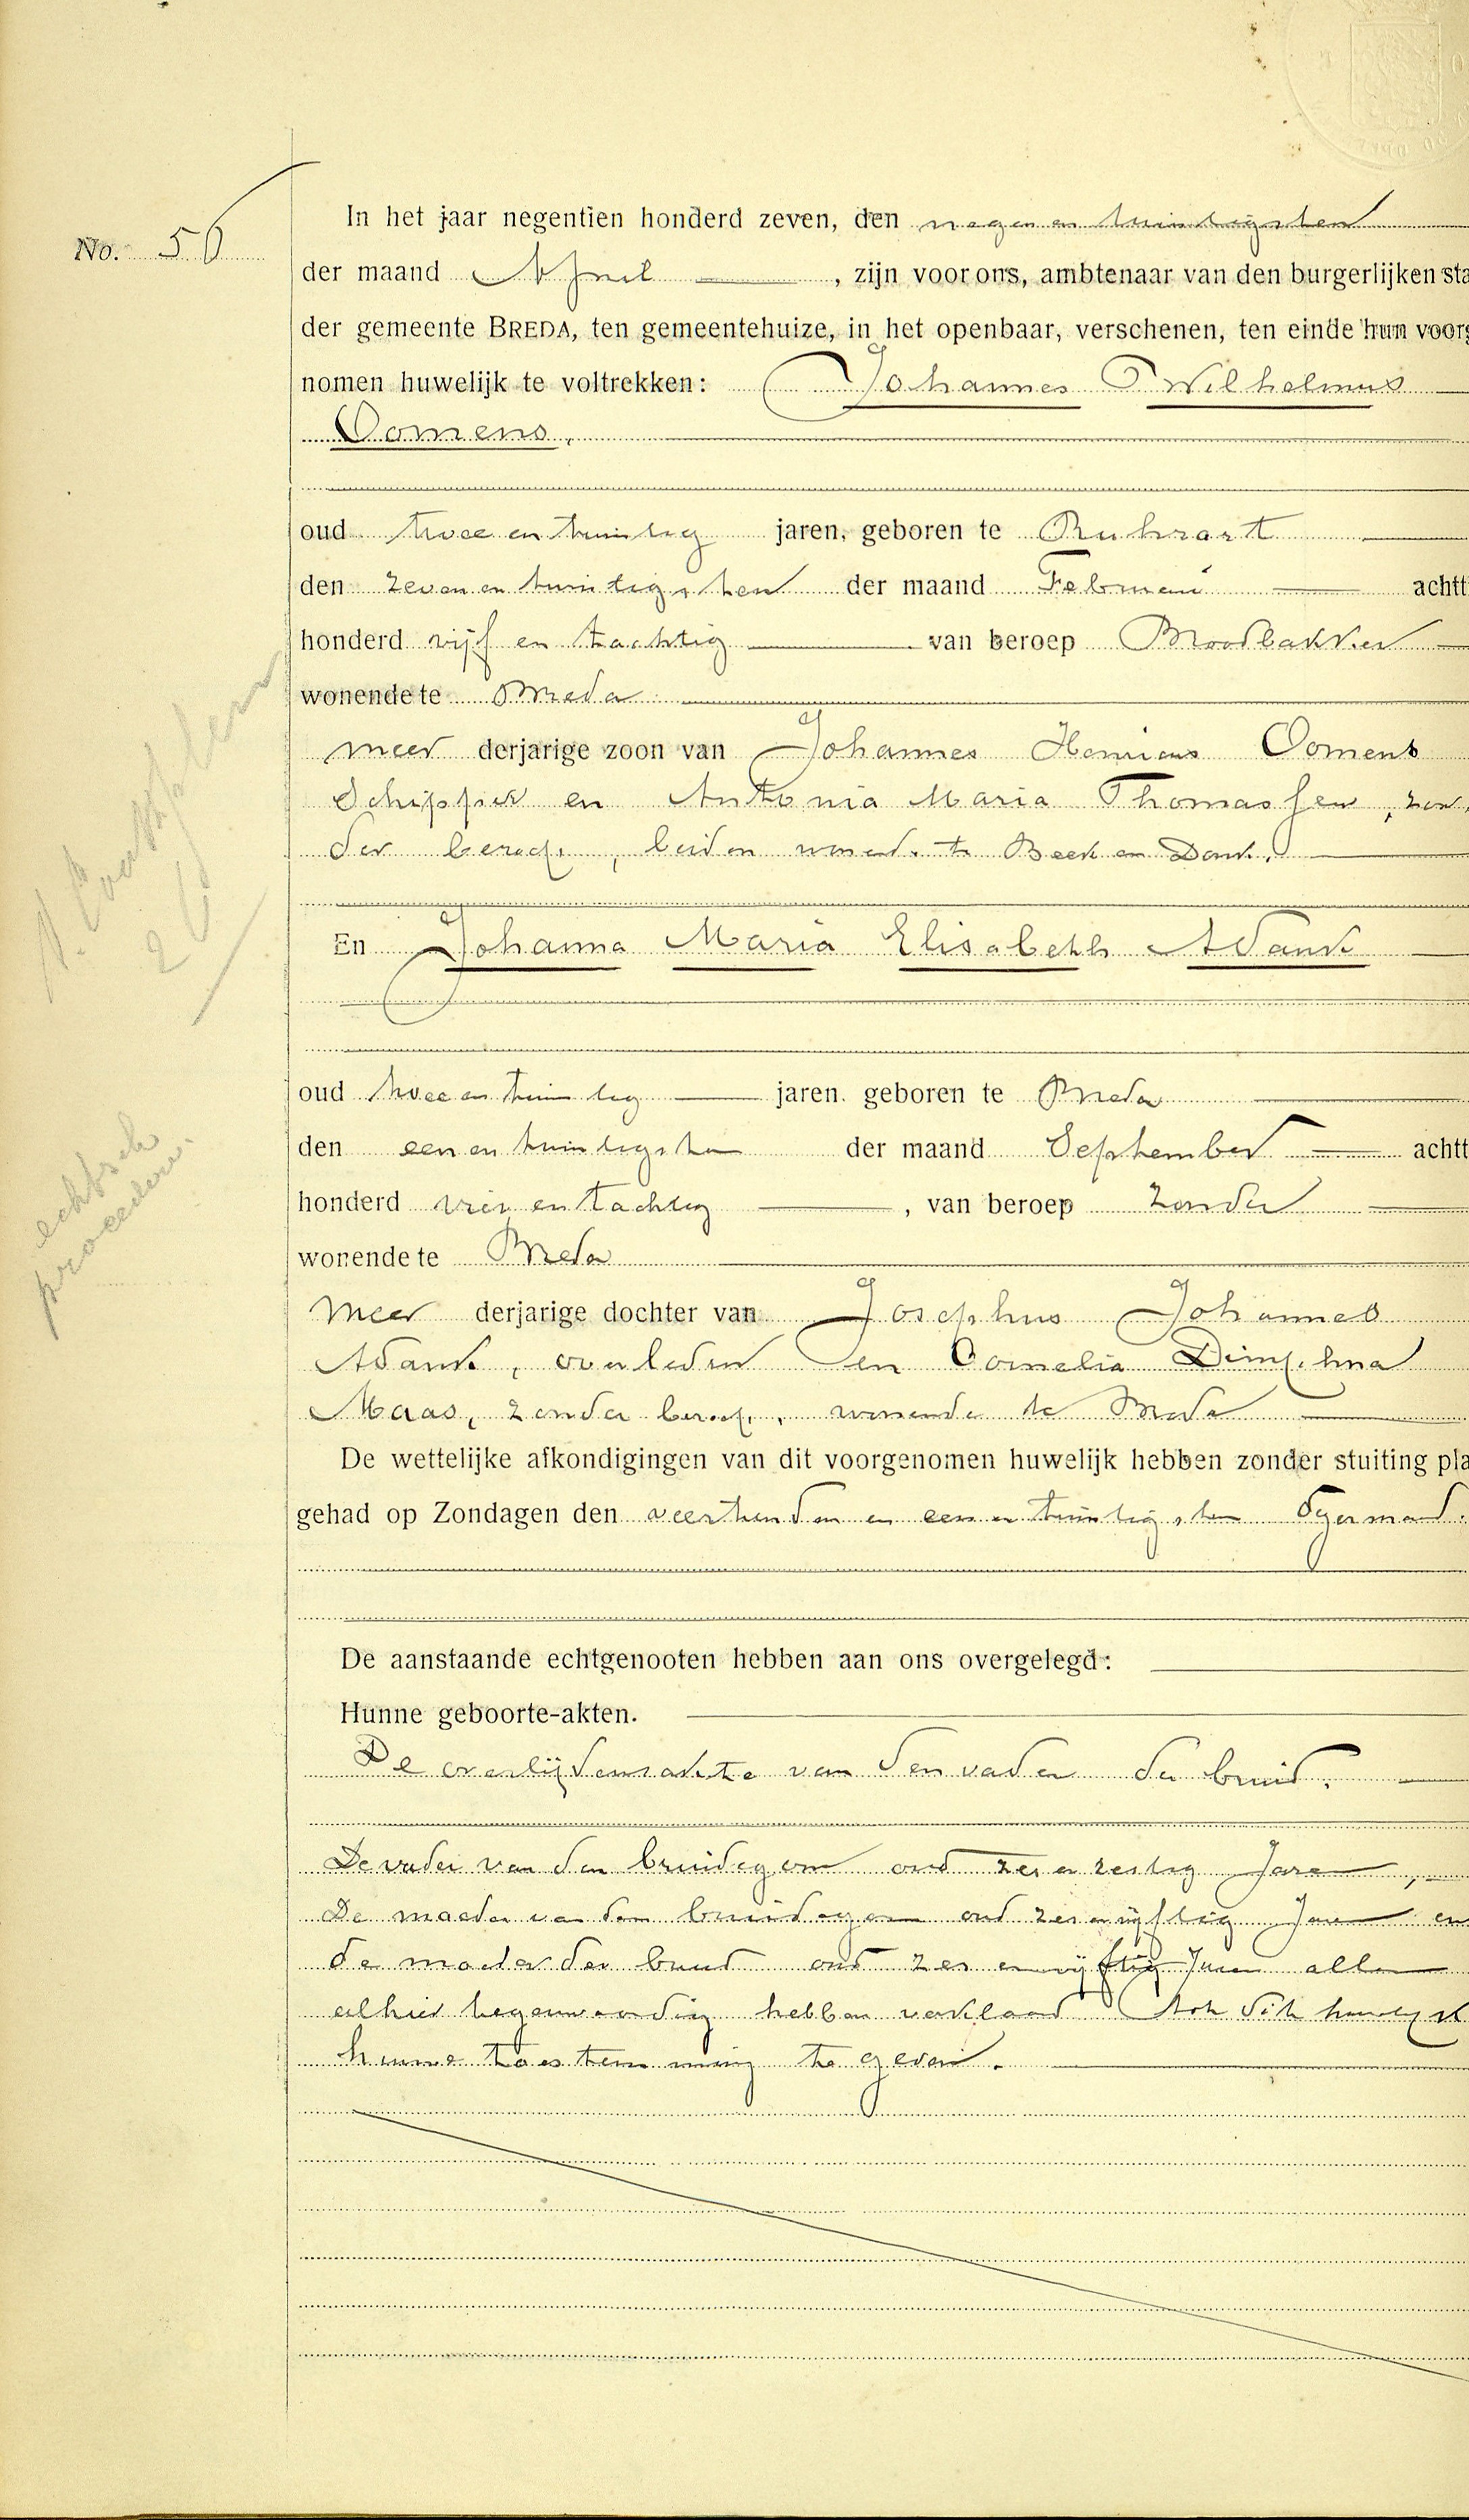 No. 56
In het jaar negentien honderd zeven, den negen en twintigsten
der maand April, zijn voor ons, ambtenaar van den burgerlijken sta
der gemeente BREDA, ten gemeentehuize, in het openbaar, verschenen, ten einde hun voorg
nomen huwelijk te voltrekken: Johannes Wilhelmus
Oomens,
oud twee en twintig jaren, geboren te Ruhrort
den zeven en twintigsten der maand Februari achtt
honderd vijf en tachtig van beroep Broodbakker
wonende te Breda
meer derjarige zoon van Johannes Henricus Oomens
Schipper en Antonia Maria Thomassen, zon,
der beroep, beiden wonende te Beek en Donk.
En Johanna Maria Elisabeth Adank
oud twee en twintig jaren. geboren te Breda
den een en twintigsten der maand September achtt
honderd vier en tachtig, van beroep zonder
wonende te Breda
meer derjarige dochter van Josephus Johannes
Adank, overleden en Cornelia Dimphna
Maas, zonder beroep, wonende te Breda
De wettelijke afkondigingen van dit voorgenomen huwelijk hebben zonder stuiting pla
gehad op Zondagen den veertienden en een en twintigsten dezer maand.
De aanstaande echtgenooten hebben aan ons overgelegd:
Hunne geboorte-akten.
De overlijdensakte van den vader der bruid.
De vader van den bruidegom oud zes en zestig Jaren,
De moeder van den bruidegom oud zes en vijftig Jaren en
de moeder der bruid oud zes en vijftig Jaren allen
alhier tegenwoordig hebben verklaard tot dit huwelijk
hunne toestemming te geven.